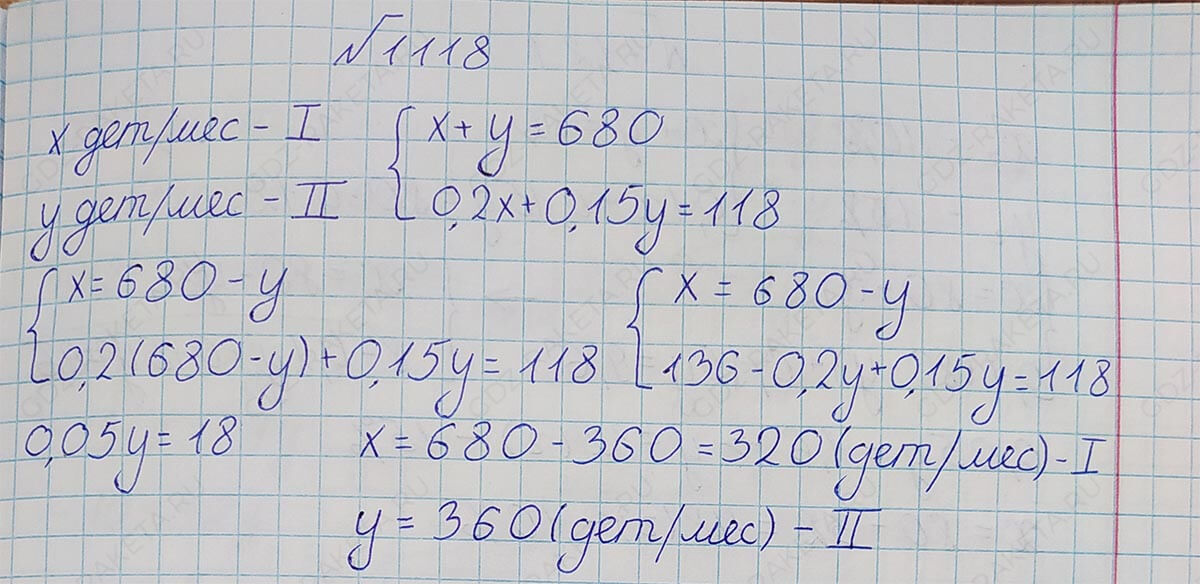 №1118
x дет/мес - I { x + y = 680
y дет/мес - II 0,2x + 0,15y = 118
{ x = 680 - y { x = 680 - y
0,2(680 - y) + 0,15y = 118 136 - 0,2y + 0,15y = 118
0,05y = 18 x = 680 - 360 = 320 (дет/мес) - I
y = 360 (дет/мес) - II
GDZ-RAKETA.RU